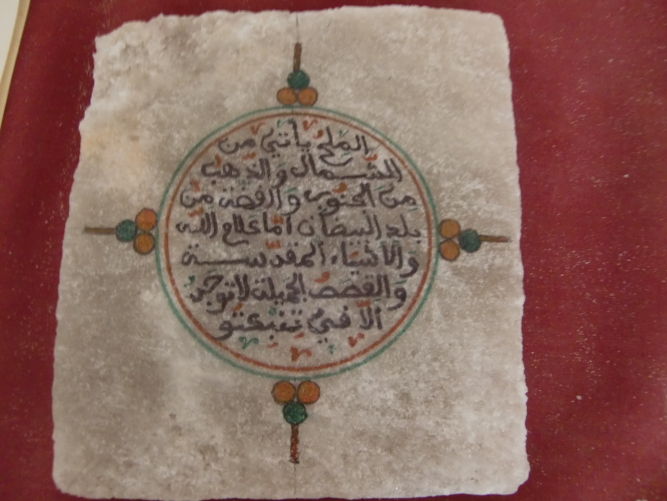 الملح يأتي من
الشمال والذهب
من الجنوب والفضة من
بلد البيضان أما كلام الله
والأشياء المقدسة
والقصص الجميلة لا توجد
ألا في تنبكتو